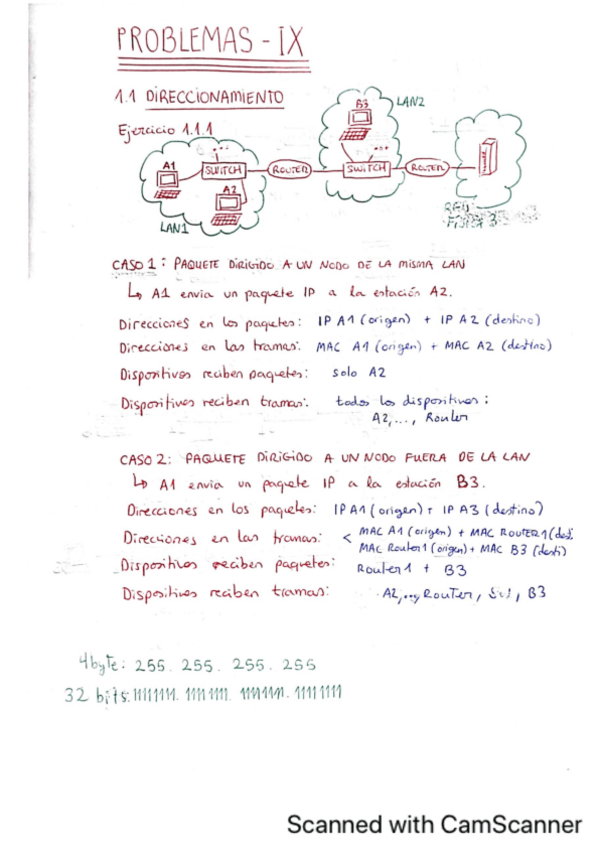 PROBLEMAS - IX
1.1 DIRECCIONAMIENTO
Ejercicio 1.1.1
A1
SWITCH
A2
LAN1
ROUTER
B3
SWITCH
LAN2
ROUTER
RED
FÍSICA 3
CASO 1: PAQUETE DIRIGIDO A UN NODO DE LA MISMA LAN
↳ A1 envia un paquete IP a la estación A2.
Direcciones en los paquetes: IP A1 (origen) + IP A2 (destino)
Direcciones en las tramas: MAC A1 (origen) + MAC A2 (destino)
Dispositivos reciben paquetes: solo A2
Dispositivos reciben tramas: todos los dispositivos:
A2,..., Router
CASO 2: PAQUETE DIRIGIDO A UN NODO FUERA DE LA LAN
↳ A1 envia un paquete IP a la estación B3.
Direcciones en los paquetes: IP A1 (origen) + IP A3 (destino)
Direciones en las tramas: < MAC A1 (origen) + MAC ROUTER1 (des
MAC Router1 (origen) + MAC B3 (desti)
Dispositivos reciben paquetes: Router1 + B3
Dispositivos reciben tramas: A2,..., Router, , B3
4byte: 255. 255. 255. 255
32 bits: 11111111. 11111111. 11111111. 11111111
Scanned with CamScanner